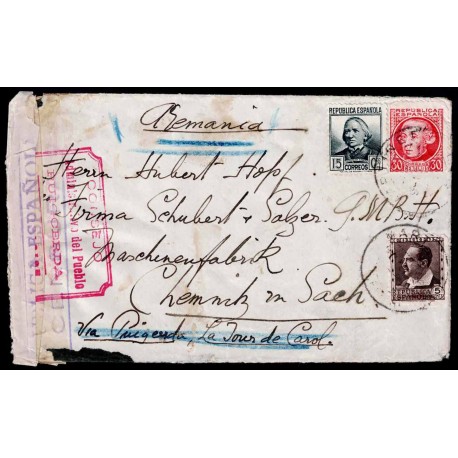 Alemania
Herrn Hubert Hopf.
Firma Schubert & Salzer G.M.B.H.
Maschinenfabrik
Chemnitz in Sach
Via Puigcerda, La Tour de Carol.
REPUBLICA ESPAÑOLA
15 Cts
CORREOS
REPUBLICA
ESPAÑOLA
30 CENTIMOS 30
CORREOS
REPUBLICA
ESPAÑOLA
5
ESPAÑOLA
del Pueblo